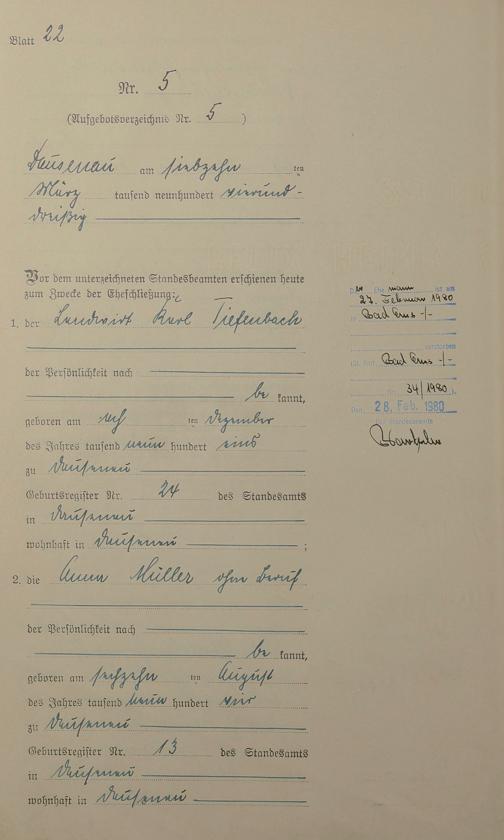 Blatt 22
Nr. 5
(Aufgebotsverzeichnis Nr. 5 )
Dausenau am siebzehn ten
März tausend neunhundert vierund-
dreißig
Vor dem unterzeichneten Standesbeamten erschienen heute
zum Zwecke der Eheschließung:
1. der Landwirt Karl Tiefenbach
der Persönlichkeit nach
be kannt,
geboren am ten Dezember
des Jahres tausend neun hundert eins
zu Dausenau
Geburtsregister Nr. 24 des Standesamts
in Dausenau
wohnhaft in Dausenau ;
2. die Anna Müller ohne Beruf
der Persönlichkeit nach
be kannt,
geboren am sechzehn ten August
des Jahres tausend neun hundert vier
zu Dausenau
Geburtsregister Nr. 13 des Standesamts
in Dausenau
wohnhaft in Dausenau
Ehemann ist am
27. Februar 1980
in Bad Ems -/-
verstorben
Bad Ems -/-
34/1980 ).
Den, 28. Feb. 1980